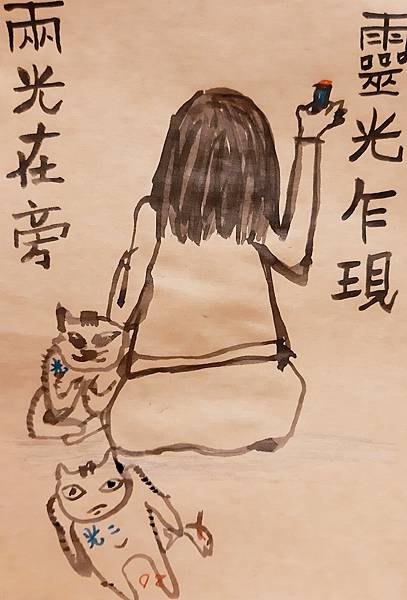 靈光乍現
兩光在旁
光二